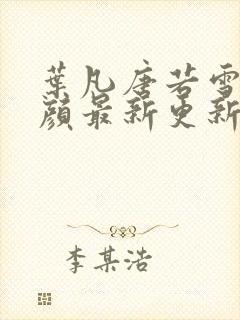 葉凡唐若雪
顏最新更新
李某浩